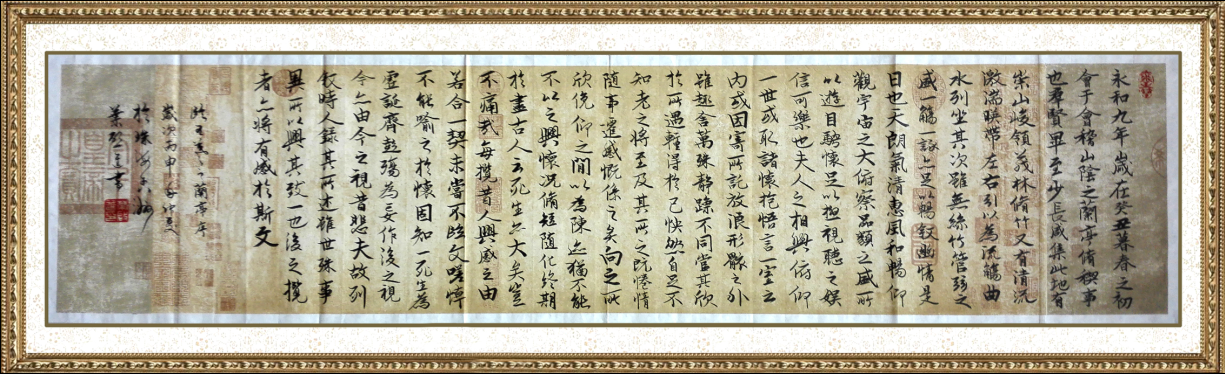 永和九年歲在癸丑暮春之初
會于會稽山陰之蘭亭脩禊事
也羣賢畢至少長咸集此地有
崇山峻領茂林脩竹又有清流
激湍暎帶左右引以為流觴曲
水列坐其次雖無絲竹管弦之
盛一觴一詠亦足以暢叙幽情是
日也天朗氣清惠風和暢仰
觀宇宙之大俯察品類之盛所
以遊目騁懷足以極視聽之娛
信可樂也夫人之相與俯仰
一世或取諸懷抱悟言一室之
內或因寄所託放浪形骸之外
雖趣舍萬殊靜躁不同當其欣
於所遇暫得於己怏然自足不
知老之將至及其所之既惓情
隨事遷感慨係之矣向之所
欣俛仰之閒以為陳迹猶不能
不以之興懷況脩短隨化終期
於盡古人云死生亦大矣豈
不痛哉每攬昔人興感之由
若合一契未嘗不臨文嗟悼
不能喻之於懷固知一死生為
虛誕齊彭殤為妄作後之視
今亦由今之視昔悲夫故列
叙時人錄其所述雖世殊事
異所以興其致一也後之攬
者亦將有感於斯文
此王羲之蘭亭序
歲次丙申
於珠海
書